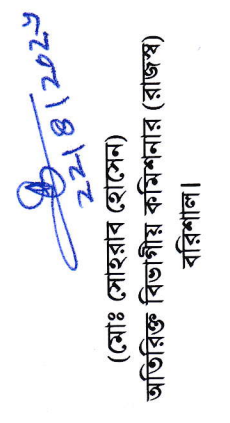 (মোঃ সোহরাব হোসেন)
অতিরিক্ত বিভাগীয় কমিশনার (রাজস্ব)
বরিশাল।